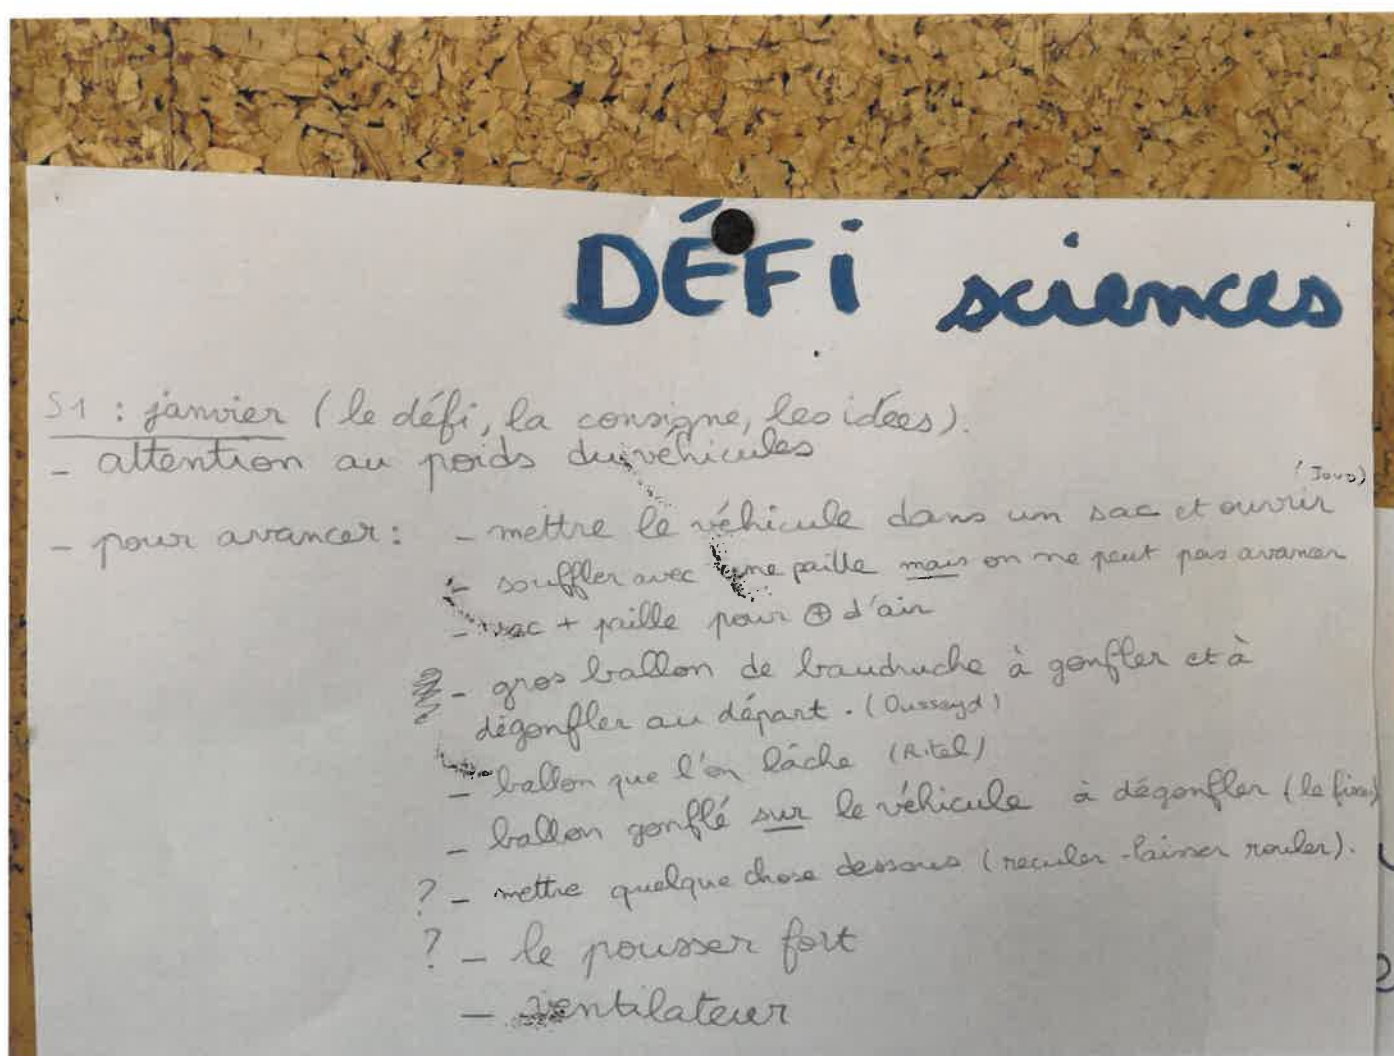 DÉFi sciences
S1 : janvier (le défi, la consigne, les idées).
- attention au poids du véhicules
- pour avancer : - mettre le véhicule dans un sac et ouvrir
- souffler avec une paille mais on ne peut pas avancer
- sac + paille pour ⊕ d'air
- gros ballon de baudruche à gonfler et à
dégonfler au départ. (Oussayd)
- ballon que l'on lâche (Ritel)
- ballon gonflé sur le véhicule à dégonfler (le fixer)
? - mettre quelque chose dessous (reculer - laisser rouler).
? - le pousser fort
- ventilateur